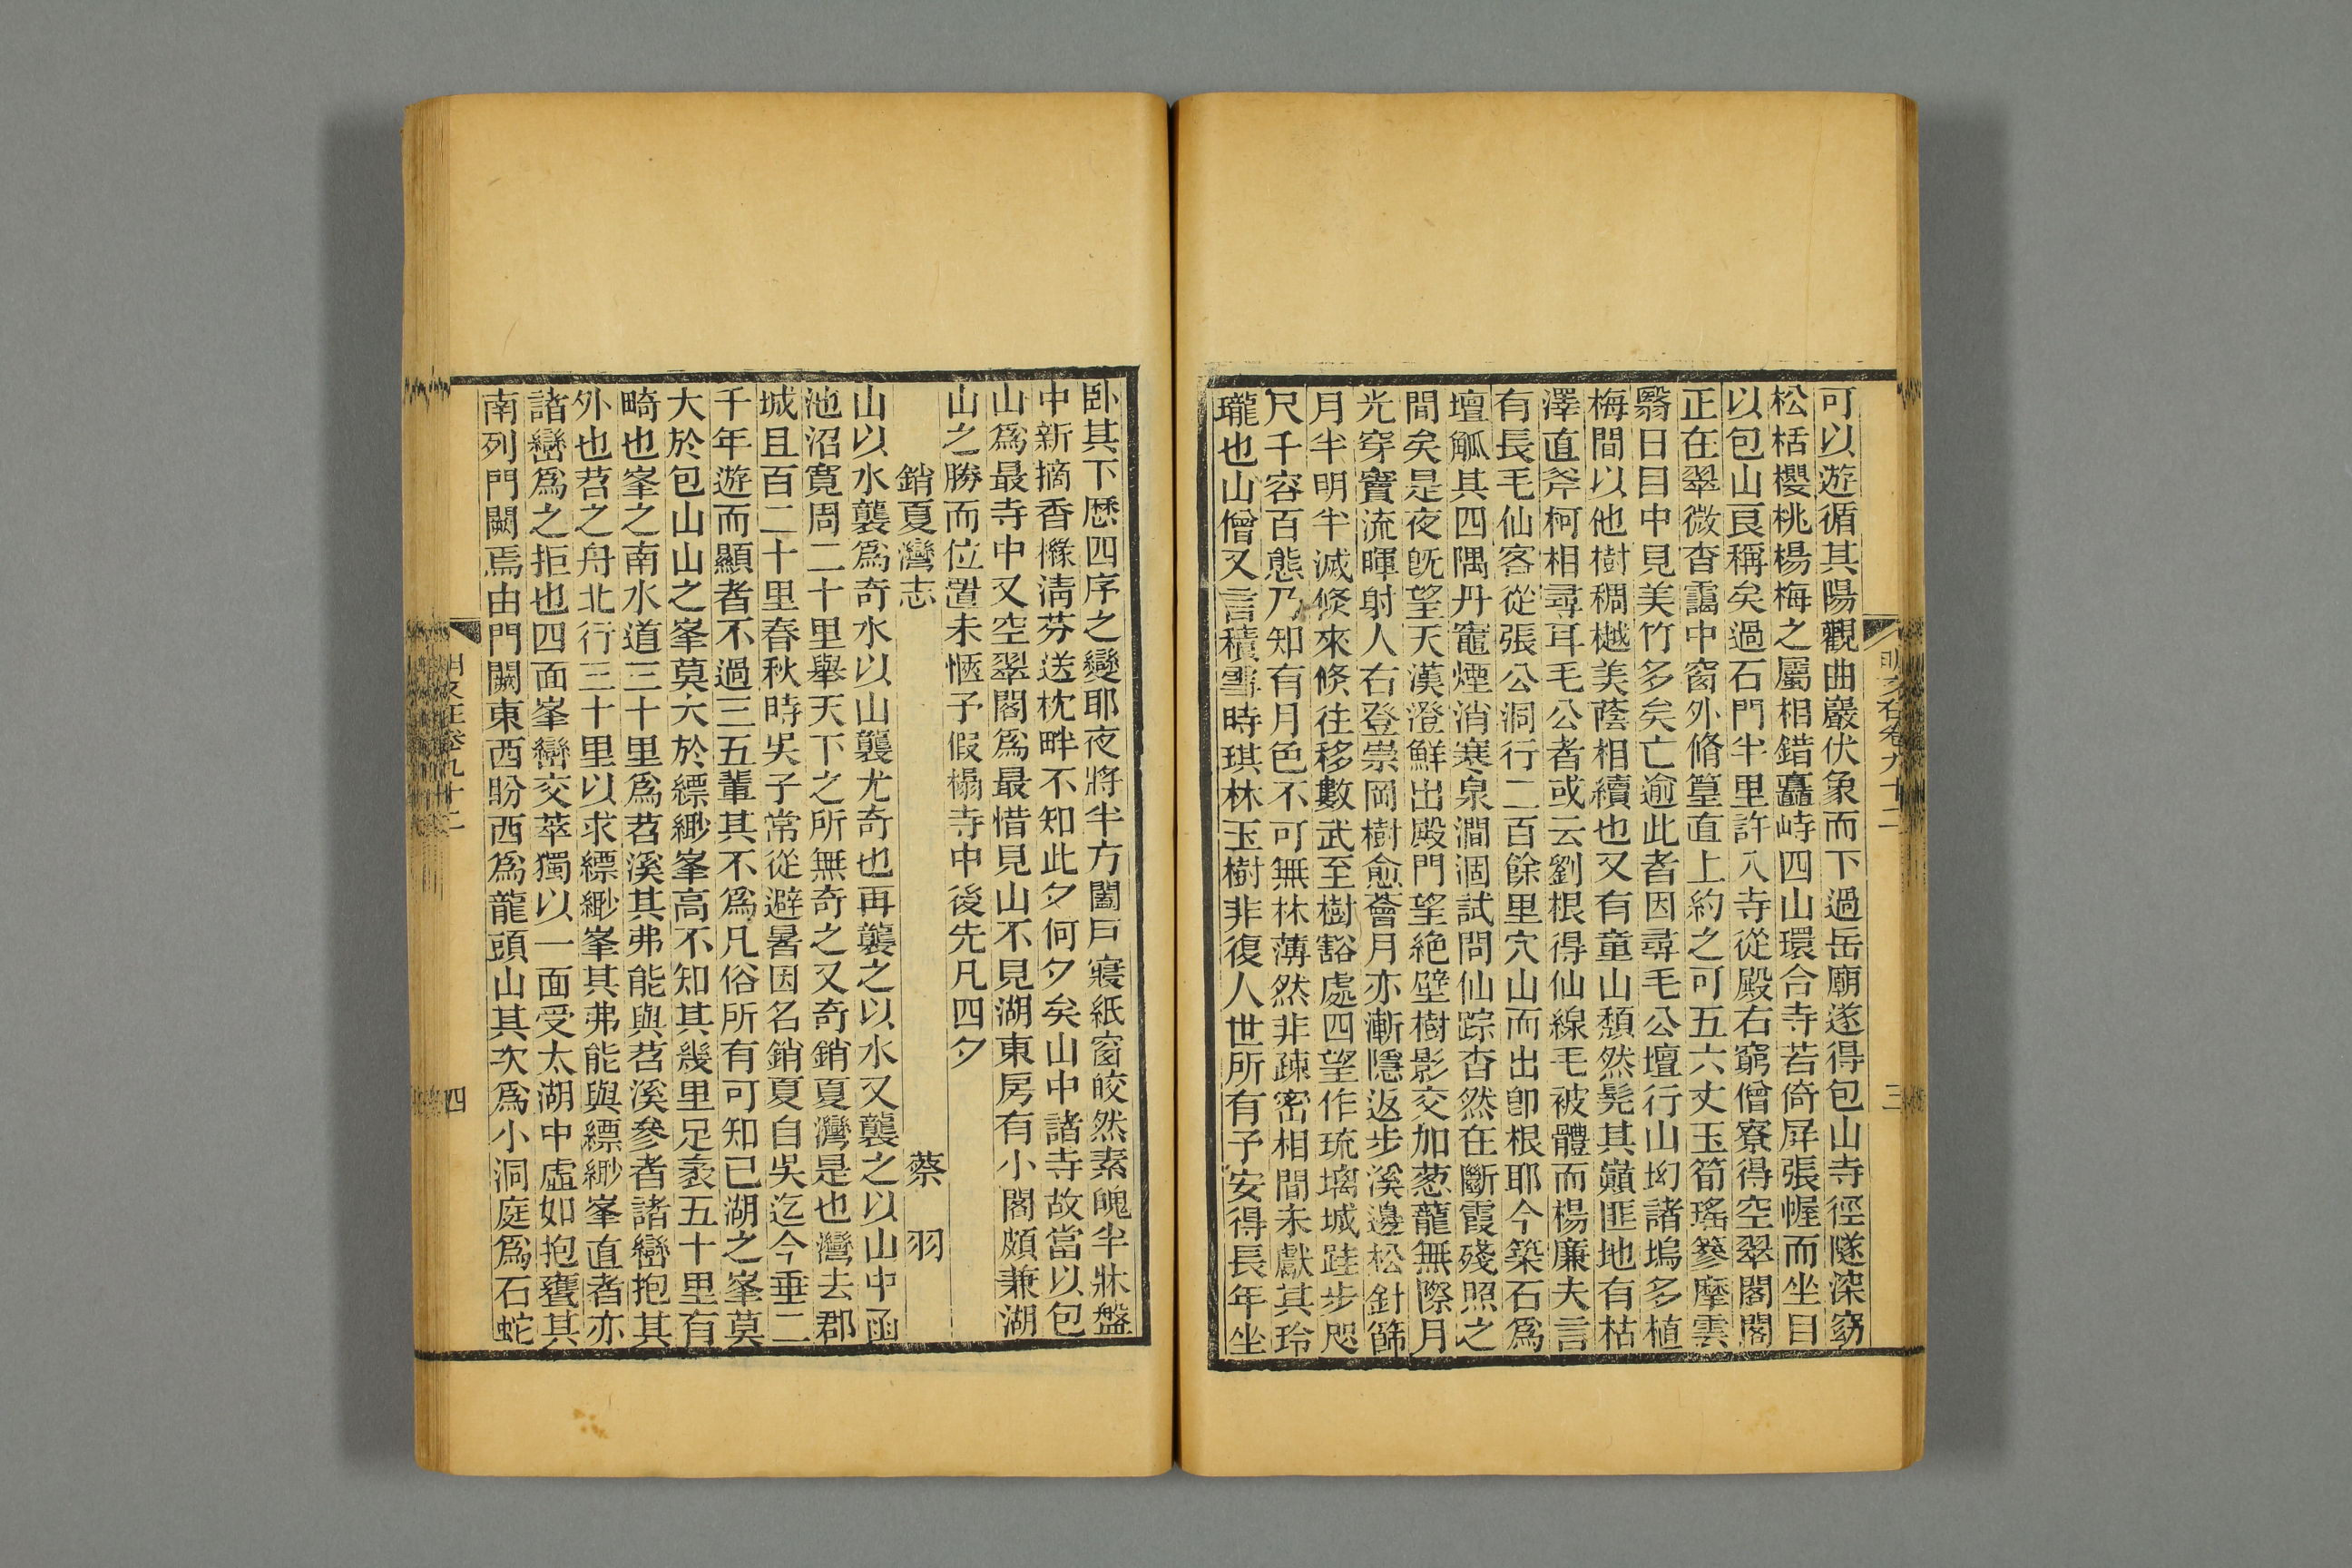 可以遊循其陽觀曲巖伏象而下過岳廟遂得包山寺徑隧深窈
松栝櫻桃楊梅之屬相錯矗峙四山環合寺若倚屏張幄而坐目
以包山艮稱矣過石門半里許入寺從殿右窮僧寮得空翠閣閣
正在翠微杳靄中窗外脩篁直上約之可五六丈玉筍瑤篸摩雲
翳日目中見美竹多矣亡逾此者因尋毛公壇行山㘭諸塢多植
梅間以他樹稠樾美蔭相續也又有童山頽然髡其巔匪地有枯
澤直斧柯相尋耳毛公者或云劉根得仙線毛被體而楊廉夫言
有長毛仙客從張公洞行二百餘里穴山而出卽根耶今築石爲
壇觚其四隅丹竈煙消寒泉澗涸試問仙踪杳然在斷霞殘照之
間矣是夜旣望天漢澄鮮出殿門望絶壁樹影交加葱蘢無際月
光穿竇流暉射人右登崇岡樹愈薈月亦漸隱返步溪邊松針篩
月半明半滅倐來倐往移數武至樹豁處四望作琉璃城跬步咫
尺千容百態乃知有月色不可無林薄然非疎密相間未獻其玲
瓏也山僧又言積雪時琪林玉樹非復人世所有予安得長年坐
三
臥其下歷四序之變耶夜將半方闔戸寢紙窗皎然素魄半牀盤
中新摘香櫞淸芬送枕畔不知此夕何夕矣山中諸寺故當以包
山爲最寺中又空翠閣爲最惜見山不見湖東房有小閣頗兼湖
山之勝而位置未愜予假榻寺中後先凡四夕
銷夏灣志 蔡羽
山以水襲爲奇水以山襲尤奇也再襲之以水又襲之以山中函
池沼寛周二十里舉天下之所無奇之又奇銷夏灣是也灣去郡
城且百二十里春秋時吳子常從避暑因名銷夏自吳迄今垂二
千年遊而顯者不過三五輩其不爲凡俗所有可知已湖之峯莫
大於包山山之峯莫大於縹緲峯高不知其幾里足袤五十里有
畸也峯之南水道三十里爲苕溪其弗能與苕溪參者諸巒抱其
外也苕之舟北行三十里以求縹緲峯其弗能與縹緲峯直者亦
諸巒爲之拒也四面峯巒交萃獨以一面受太湖中虛如抱甕其
南列門闕焉由門闕東西盼西爲龍頭山其次爲小洞庭爲石蛇
四